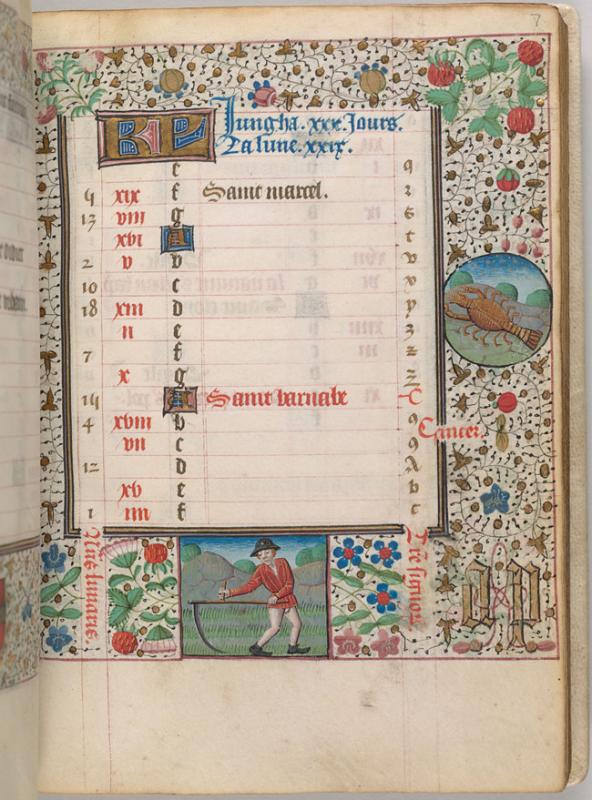 7
KL Jung ha .xxx. Jours.
La lune .xxix.
e q
4 xix f Saint marcel. r
13 viii g s
xvi A t
2 v b v
10 c x
18 xiii d y
ii e z
7 f
x g
14 A Saint barnabe
4 xviii b 9
Cancer.
vii c 9
12 d A
xv e b
1 iiii f c
lunaris